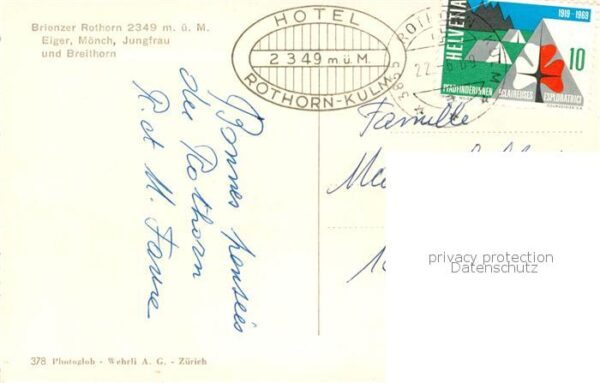 Brienzer Rothorn 2349 m. ü. M.
Eiger, Mönch, Jungfrau
und Breithorn
HOTEL
2349 m.ü.M.
ROTHORN-KULM
HELVETIA
1919 - 1969
10
PFADFINDERINNEN ECLAIREUSES ESPLORATRICI
Bonnes pensées
du Rothorn
R. et M. Favre
Famille
privacy protection
Datenschutz
378 Photoglob - Wehrli A. G. - Zürich